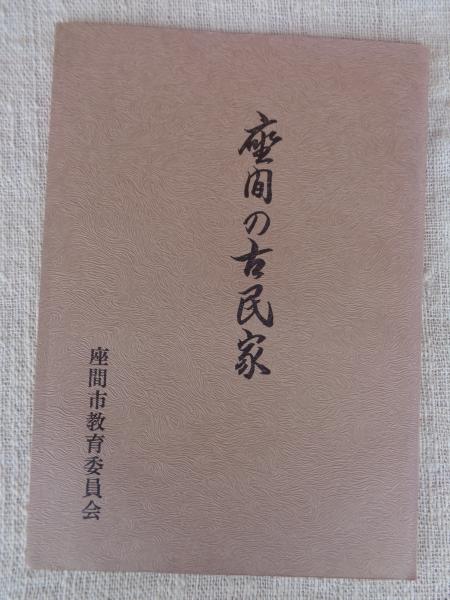 座間の古民家
座間市教育委員会